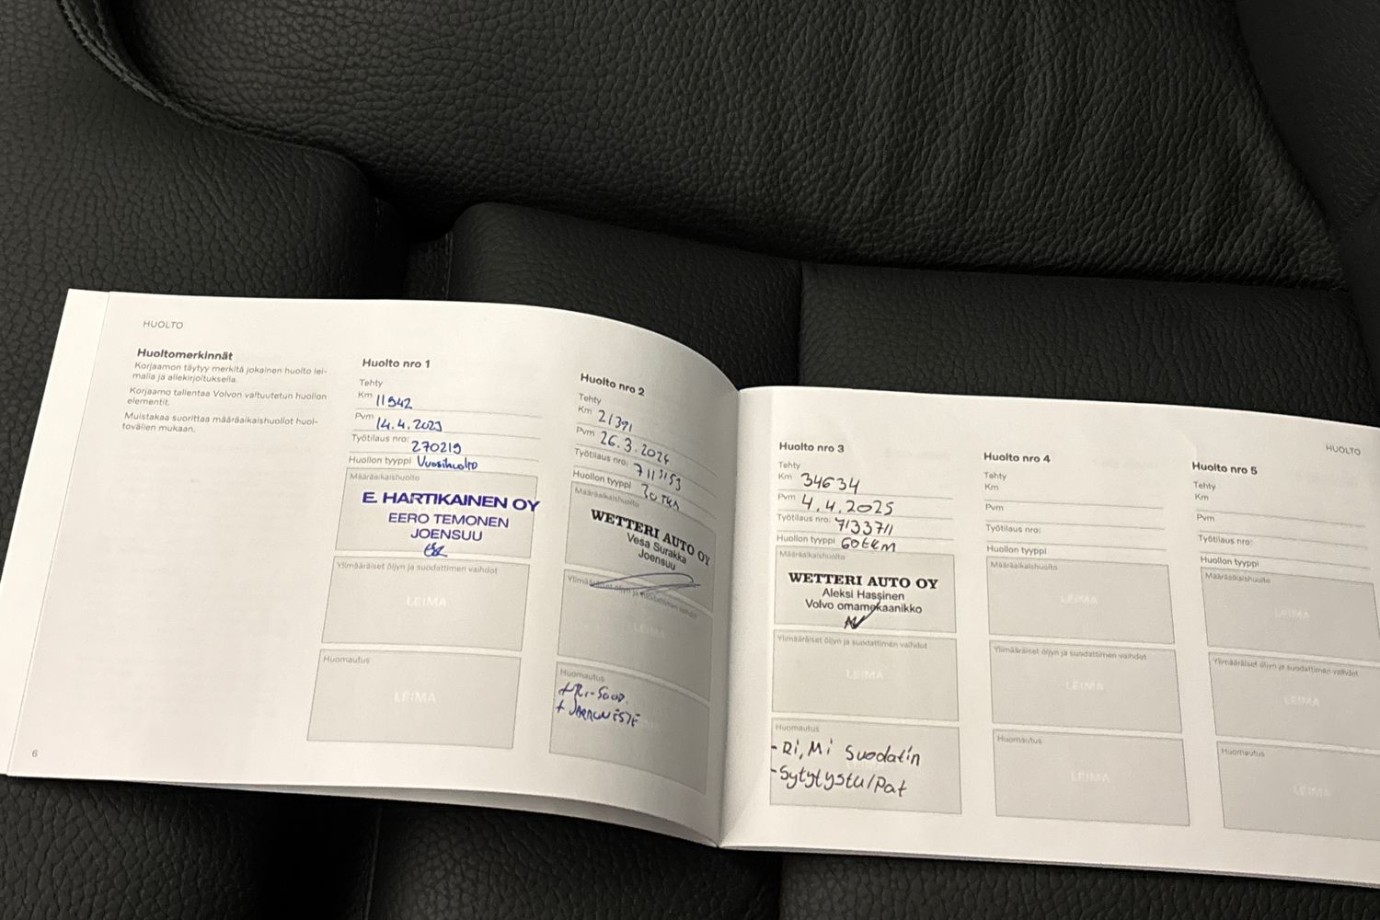 HUOLTO
Huoltomerkinnät
Korjaamon täytyy merkitä jokainen huolto lei-
malla ja allekirjoituksella.
Korjaamo tallentaa Volvon valtuutetun huollon
elementit.
Muistakaa suorittaa määräaikaishuollot huol-
tovälien mukaan.
6
Huolto nro 1
Tehty
Km 11942
Pvm 14.4.2023
Työtilaus nro: 270219
Huollon tyyppi Vuosihuolto
Määräaikaishuolto
E. HARTIKAINEN OY
EERO TEMONEN
JOENSUU
Ylimääräiset öljyn ja suodattimen vaihdot
LEIMA
Huomautus
LEIMA
Huolto nro 2
Tehty
Km 21391
Pvm 26.3.2024
Työtilaus nro: 7113153
Huollon tyyppi
Määräaikaishuolto
WETTERI AUTO OY
Vesa Surakka
Joensuu
Ylimääräiset öljyn ja suodattimen vaihdot
LEIMA
Huomautus
+ Ri-SUOD.
+ JARRUNESTE
Huolto nro 3
Tehty
Km 34634
Pvm 4.4.2025
Työtilaus nro: 7133711
Huollon tyyppi 60tkm
Määräaikaishuolto
WETTERI AUTO OY
Aleksi Hassinen
Volvo omamekaanikko
Ylimääräiset öljyn ja suodattimen vaihdot
LEIMA
Huomautus
-Ri, Mi Suodatin
-Sytytystulpat
Huolto nro 4
Tehty
Km
Pvm
Työtilaus nro:
Huollon tyyppi
Määräaikaishuolto
LEIMA
Ylimääräiset öljyn ja suodattimen vaihdot
LEIMA
Huomautus
LEIMA
HUOLTO
Huolto nro 5
Tehty
Km
Pvm
Työtilaus nro:
Huollon tyyppi
Määräaikaishuolto
LEIMA
Ylimääräiset öljyn ja suodattimen vaihdot
LEIMA
Huomautus
LEIMA